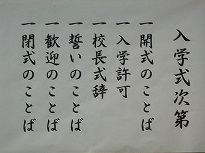 入学式次第
一開式のことば
一入学許可
一校長式辞
一誓いのことば
一歓迎のことば
一閉式のことば